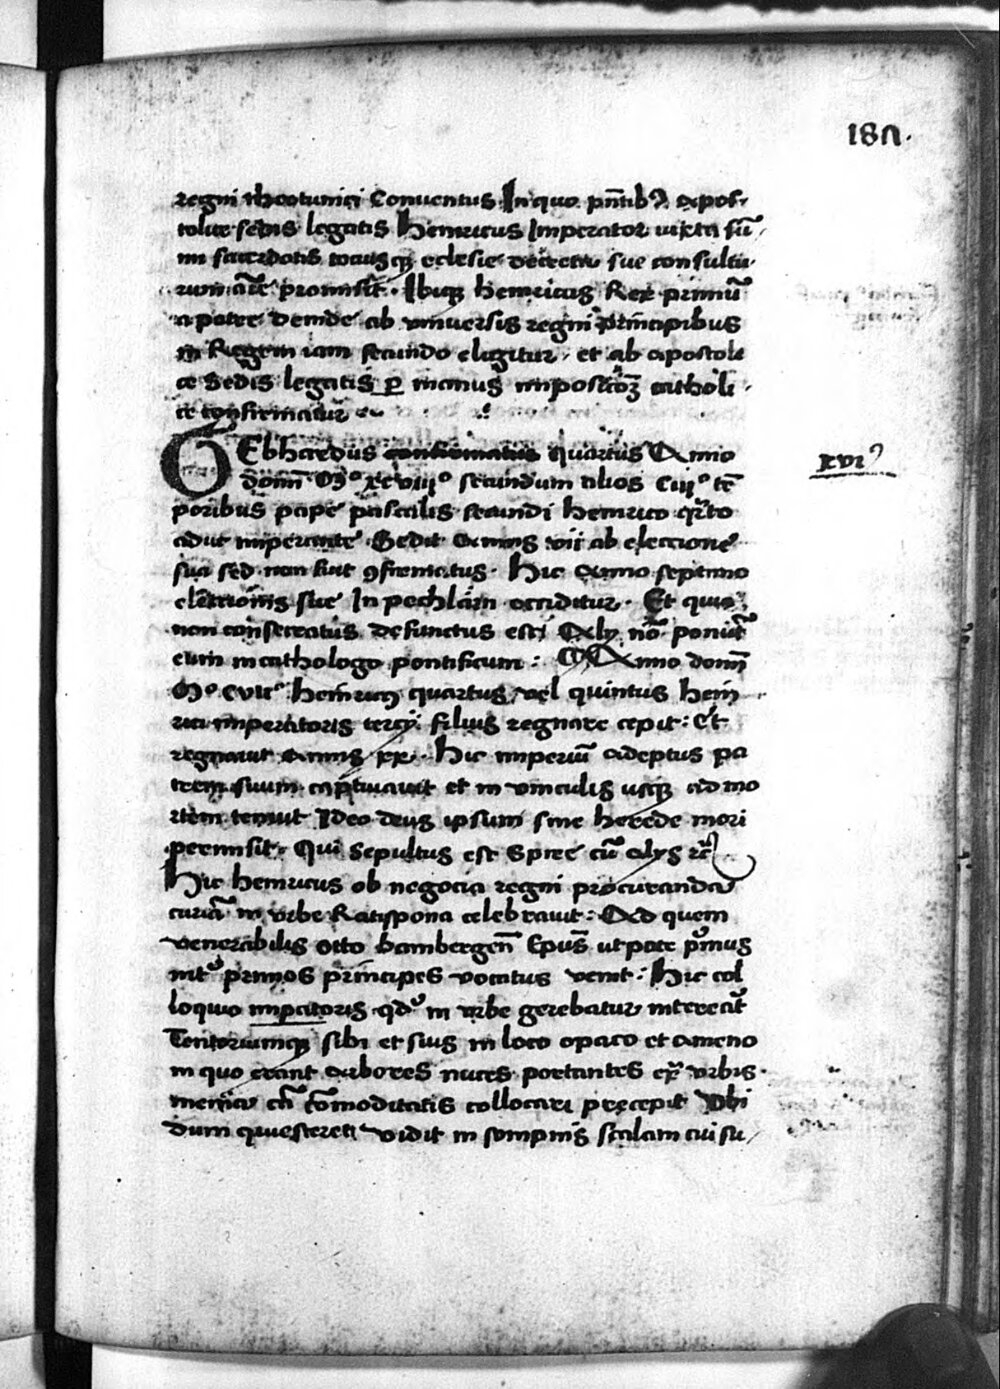 187.
regni theotunici Conuentus In quo pn̄tib9 apos-
tolice sedis legatis Heinricus Imperator iuxta sū
mi sacerdotis tociusq; eclesie decreta sue consultu
rum cā͞e promisit. Ibiq; heinricus Rex primū
a patre deinde ab vniuersis regni principibus
in Regem iam secundo eligitur. et ab apostoli
ce Sedis legatis p manus impositōꝫ catholi
ce confirmatur
GEbhardus confirmatus quartus Anno
domī Mº xcviiiº secundum alios Ciiiº tē
poribus pape pascalis secundi heinrico qͣrto
adut imperante Sedit annis vii ab eleccione
sua sed non fuit ꝯfirmatus. Hic Anno septimo
elēccionis sue In pechlarn occiditur. Et quia
non consecratus defunctus est Alij nō ponūt
eum in cathologo pontificum: Anno domī
Mº cviiº heinricus quartus vel quintus Hein
rici imperatoris tercij filius regnare cepit: Et
regnauit Annis xx. Hic imperiū adeptus pa
trem suum captiuauit et in vinculis usq; ad mo
rtem tenuit Ideo deus ipsum sine herede mori
permisit. Qui Sepultus est Spire cū alijs rc̄
Hic heinricus ob negocia regni procuranda
curiā in vrbe Ratispona celebrauit: Ad quem
venerabilis Otto bambergen̄ Epūs ut pote pͥmus
int͛ primos principes vocatus venit: Hic col
loquio imp̱atoris qd͛ in vrbe gerebatur intererāt
Tentoriumq; sibi et suis in loco opaco et ameno
in quo erant arbores nuces portantes exͣ vrbis
menia cā cōmoditatis collocari precepit Vbi
dum quiesceret vidit in sompnis scalam cui su
xvi9